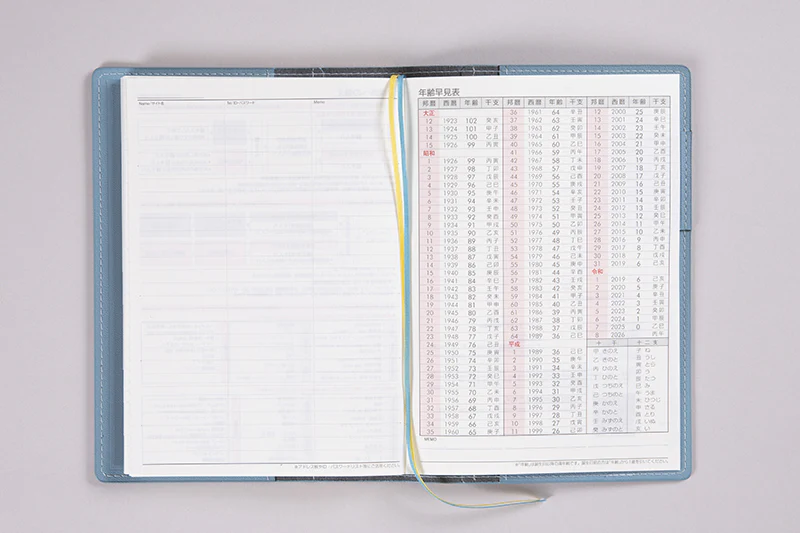 Name・サイト名 No・ID・パスワード Memo
年齢早見表
邦暦 西暦 年齢 干支
大正
12 1923 102 癸亥
13 1924 101 甲子
14 1925 100 乙丑
15 1926 99 丙寅
昭和
1 1926 99 丙寅
2 1927 98 丁卯
3 1928 97 戊辰
4 1929 96 己巳
5 1930 95 庚午
6 1931 94 辛未
7 1932 93 壬申
8 1933 92 癸酉
9 1934 91 甲戌
10 1935 90 乙亥
11 1936 89 丙子
12 1937 88 丁丑
13 1938 87 戊寅
14 1939 86 己卯
15 1940 85 庚辰
16 1941 84 辛巳
17 1942 83 壬午
18 1943 82 癸未
19 1944 81 甲申
20 1945 80 乙酉
21 1946 79 丙戌
22 1947 78 丁亥
23 1948 77 戊子
24 1949 76 己丑
25 1950 75 庚寅
26 1951 74 辛卯
27 1952 73 壬辰
28 1953 72 癸巳
29 1954 71 甲午
30 1955 70 乙未
31 1956 69 丙申
32 1957 68 丁酉
33 1958 67 戊戌
34 1959 66 己亥
35 1960 65 庚子
邦暦 西暦 年齢 干支
36 1961 64 辛丑
37 1962 63 壬寅
38 1963 62 癸卯
39 1964 61 甲辰
40 1965 60 乙巳
41 1966 59 丙午
42 1967 58 丁未
43 1968 57 戊申
44 1969 56 己酉
45 1970 55 庚戌
46 1971 54 辛亥
47 1972 53 壬子
48 1973 52 癸丑
49 1974 51 甲寅
50 1975 50 乙卯
51 1976 49 丙辰
52 1977 48 丁巳
53 1978 47 戊午
54 1979 46 己未
55 1980 45 庚申
56 1981 44 辛酉
57 1982 43 壬戌
58 1983 42 癸亥
59 1984 41 甲子
60 1985 40 乙丑
61 1986 39 丙寅
62 1987 38 丁卯
63 1988 37 戊辰
64 1989 36 己巳
平成
1 1989 36 己巳
2 1990 35 庚午
3 1991 34 辛未
4 1992 33 壬申
5 1993 32 癸酉
6 1994 31 甲戌
7 1995 30 乙亥
8 1996 29 丙子
9 1997 28 丁丑
10 1998 27 戊寅
11 1999 26 己卯
邦暦 西暦 年齢 干支
12 2000 25 庚辰
13 2001 24 辛巳
14 2002 23 壬午
15 2003 22 癸未
16 2004 21 甲申
17 2005 20 乙酉
18 2006 19 丙戌
19 2007 18 丁亥
20 2008 17 戊子
21 2009 16 己丑
22 2010 15 庚寅
23 2011 14 辛卯
24 2012 13 壬辰
25 2013 12 癸巳
26 2014 11 甲午
27 2015 10 乙未
28 2016 9 丙申
29 2017 8 丁酉
30 2018 7 戊戌
31 2019 6 己亥
令和
1 2019 6 己亥
2 2020 5 庚子
3 2021 4 辛丑
4 2022 3 壬寅
5 2023 2 癸卯
6 2024 1 甲辰
7 2025 0 乙巳
8 2026 丙午
十干
甲 きのえ
乙 きのと
丙 ひのえ
丁 ひのと
戊 つちのえ
己 つちのと
庚 かのえ
辛 かのと
壬 みずのえ
癸 みずのと
十二支
子 ね
丑 うし
寅 とら
卯 う
辰 たつ
巳 み
午 うま
未 ひつじ
申 さる
酉 とり
戌 いぬ
亥 い
MEMO